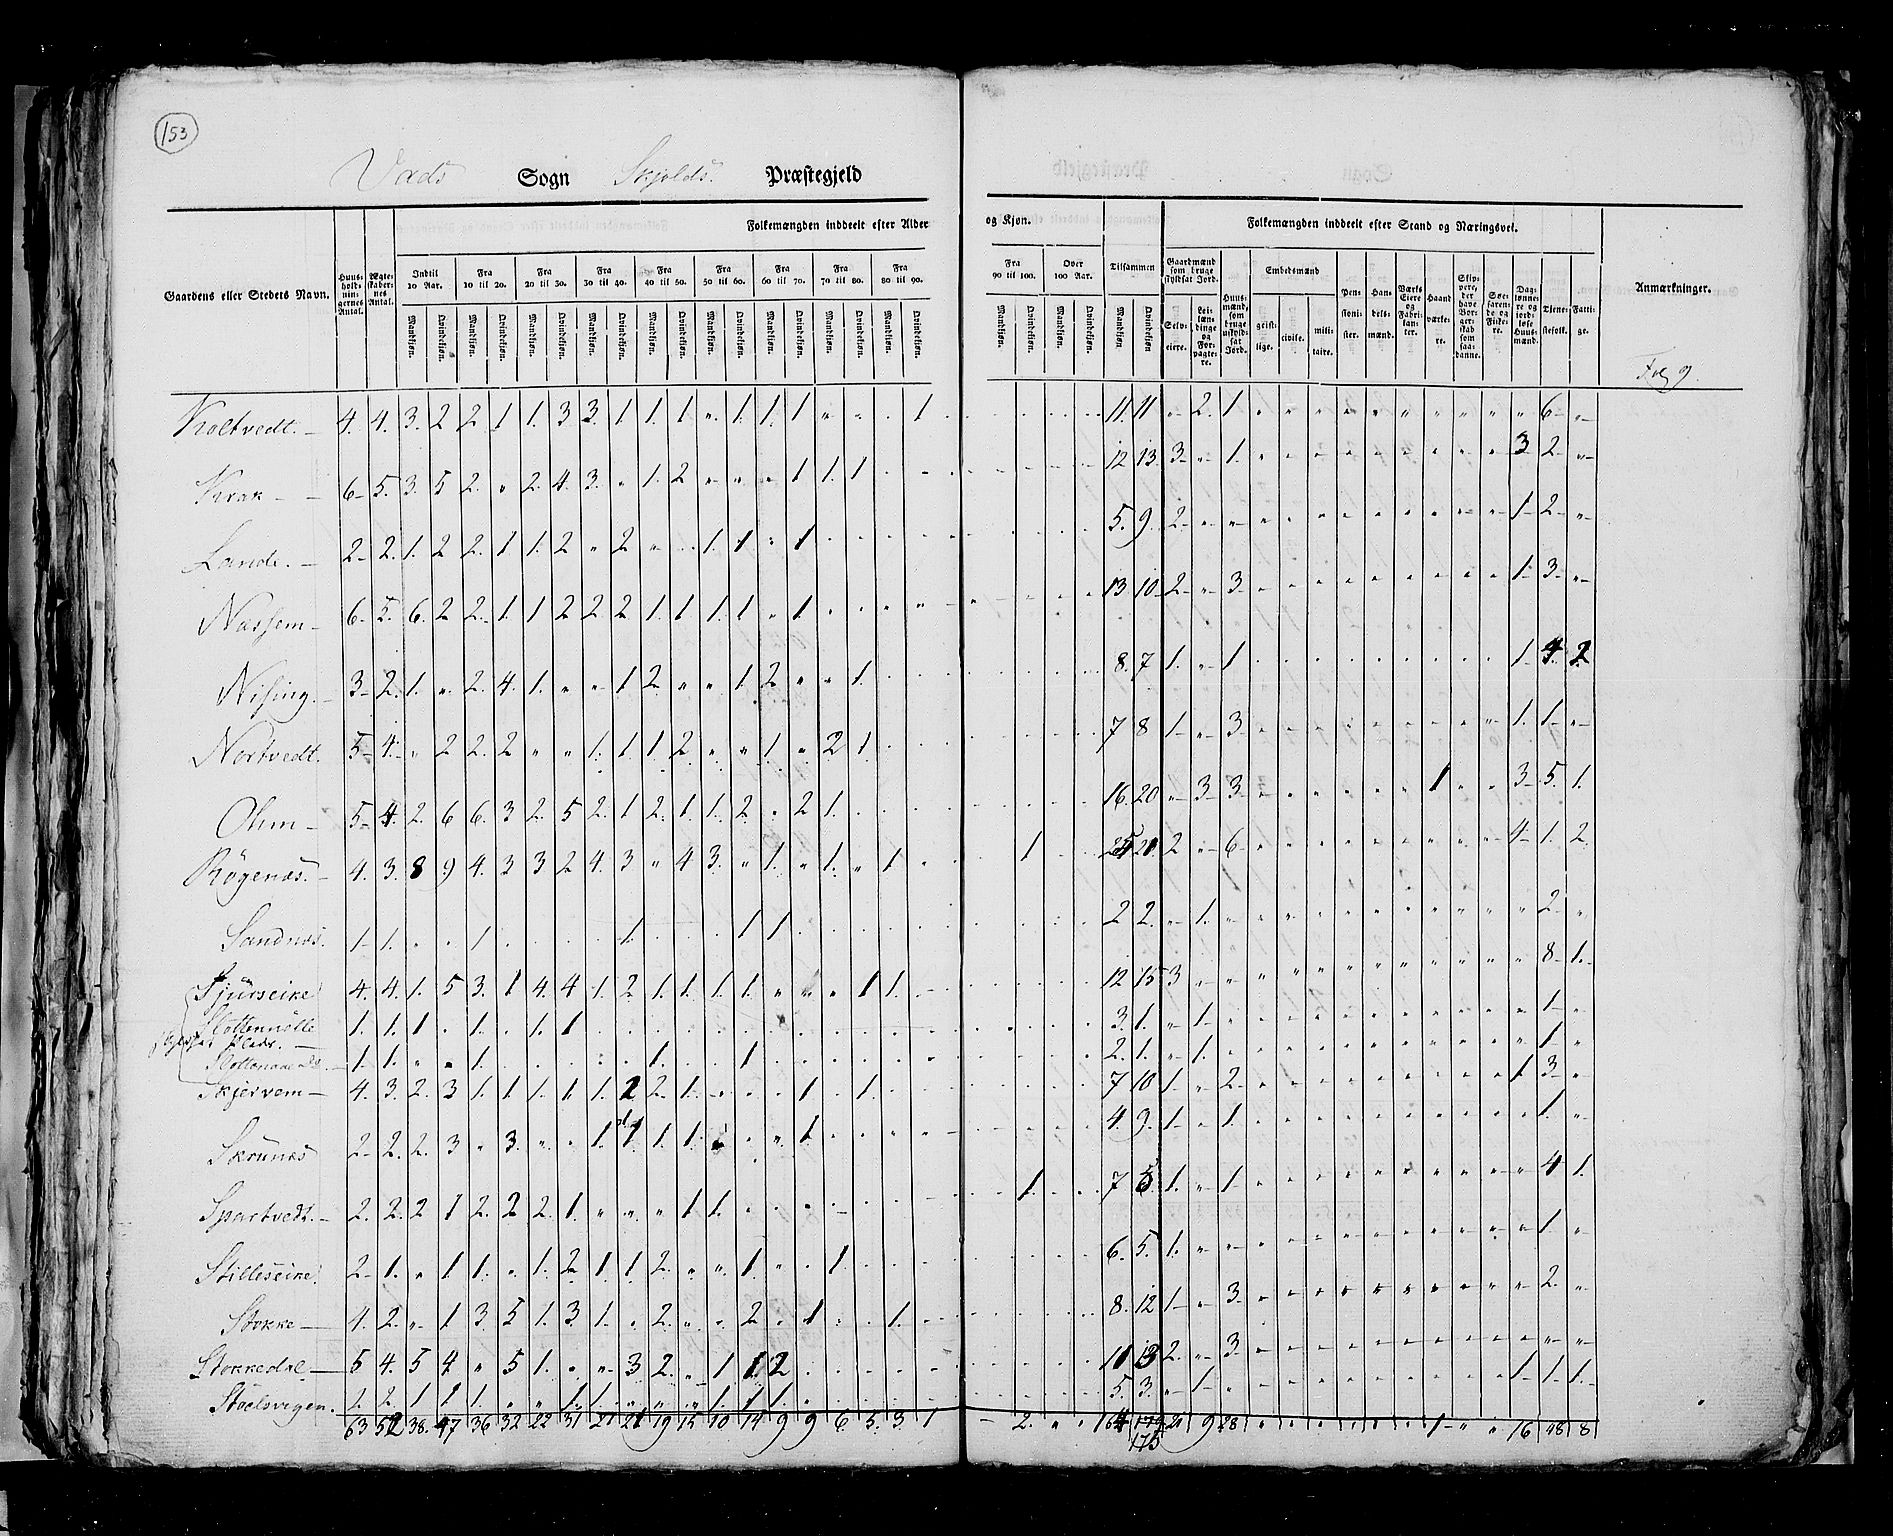 153
Vads Sogn Skjolds Præstegjeld
Gaardens eller Stedets Navn. Huusholdningernes Antal. Ægteskabernes Antal. Folkemængden inddeelt efter Alder og Kjøn. Tilsammen Folkemængden inddeelt efter Stand og Næringsvei. Anmærkninger.
Indtil 10 Aar. Fra 10 til 20. Fra 20 til 30. Fra 30 til 40. Fra 40 til 50. Fra 50 til 60. Fra 60 til 70. Fra 70 til 80. Fra 80 til 90. Fra 90 til 100. Over 100 Aar.
Mandkjøn. Qvindekjøn.
Gaardmænd som bruge skyldsat Jord. Selveiere. Leilændinge og Forpagtere. Huusmænd, som bruge uskyldsat Jord. Embedsmænd geistlige. civile. militaire. Pensionister. Handelsmænd. Værks Eiere og Fabrikanter. Haandværkere. Skippere, der have Borgerskab som saadanne. Søefarende og Fiskere. Dagslønnere og jordløse Huusmænd. Tjenestefolk. Fattige.
Koltvedt. 4. 4. 3. 2 2 1 1. 3 3. 1 1. 1 „ 1. 1. 1 „ „ . 1 11. 11. „ 2. 1 „ 6 „
Krak 6 5. 3. 5 2. „ 2. 4. 3. „ 1. 2 „ „ „ „ 1 1. 1 12 13. 3 „ 1. 3 2. „
Lande. 2 2. 1. 2 2. 1 1. 2 „ 2 „ „ 1. 1 „ 1 5. 9. 2 „ „ 1 2 „
Nassem 6 5. 6. 2 2. 1 1 2 2 2 1. 1 1. 1 „ 1. 13 10 2 „ 3 1. 3. „
Nising. 3 2. 1. „ 2. 4. 1. „ „ 1 2 „ „ 1. 2 „ „ 1. 8. 7 1. „ 1 1. 4. 2
Nortvedt. 5 4. „ 2 2. 2 „ „ 1. 1 1 2 „ „ 1 „ 2 1. 7 8 1 „ 3 1. 1. „
Ohm 5 4. 2. 6 6. 3 2. 5 2. 1 2. 1 1. 2 „ 2 1. 16. 20 „ 3 3. 1 „ „ 3 5. 1.
Rögenæs. 4. 3. 8 9 4. 3 3 2 4. 3 „ 4 3. „ 1. „ 1. „ 1 1 25 21. 2 „ 6 4 1. 2.
Sandnæs. 1 1. . . 1 1. 1 1 2 2. „ 1. 2 „
Sjurseike 4. 4. 1. 5 3. 1 4. 4 1. 2 1. 1. 1. 1. „ „ „ 1 1. 12 15 3 8 1.
1. 1. 1 . 1. . 1. 1 3. 1. „ 1 1 „
1. 1. „ „ 1. 1. 1 2. 1. „ 1. 1 „
Skjervem 4. 3. 2. 3 1. 1 1. 1 1. 2 2 1. „ 1 . 1. 7 10 1 „ 2 1 3 „
Skrunæs 2 2. 2. 3 „ 3. „ „ 1. 1 1. 1. „ „ 1. 4. 9. 1 „ 1. 1. „
Spartvedt. 2. 2. 2 1 2. 2 2. 1. „ „ „ 1 1. 1. 7 5 1. „ 1 4 1.
Stilleseike 2 1. „ 1 1. „ 1. 2 1 1 2. „ „ 1 „ „ 1. 6. 5. 1. 1 „
Stokke 4. 2. „ 1 3. 5 1. 3. 1. „ 2. „ „ 2 „ 1 1. 8. 12 1 „ 3. 2. „
Stokkedal 5 4. 5 4 „ 5 1. „ „ 3 2. „ 1 1 2 10 13 2. „ 3.
Stoelsvigen. 2. 2. 1 1 1. „ „ 1 1. „ „ „ „ 1 1. 5. 3. „ 1 1 1. 1.
63 52 38. 47 36 32 22 31 21 21 19 15 10 14 9 9 6. 5. 3. 1 2. „ „ 164 179 21 9 28 1 „ „ 16 48 8
175